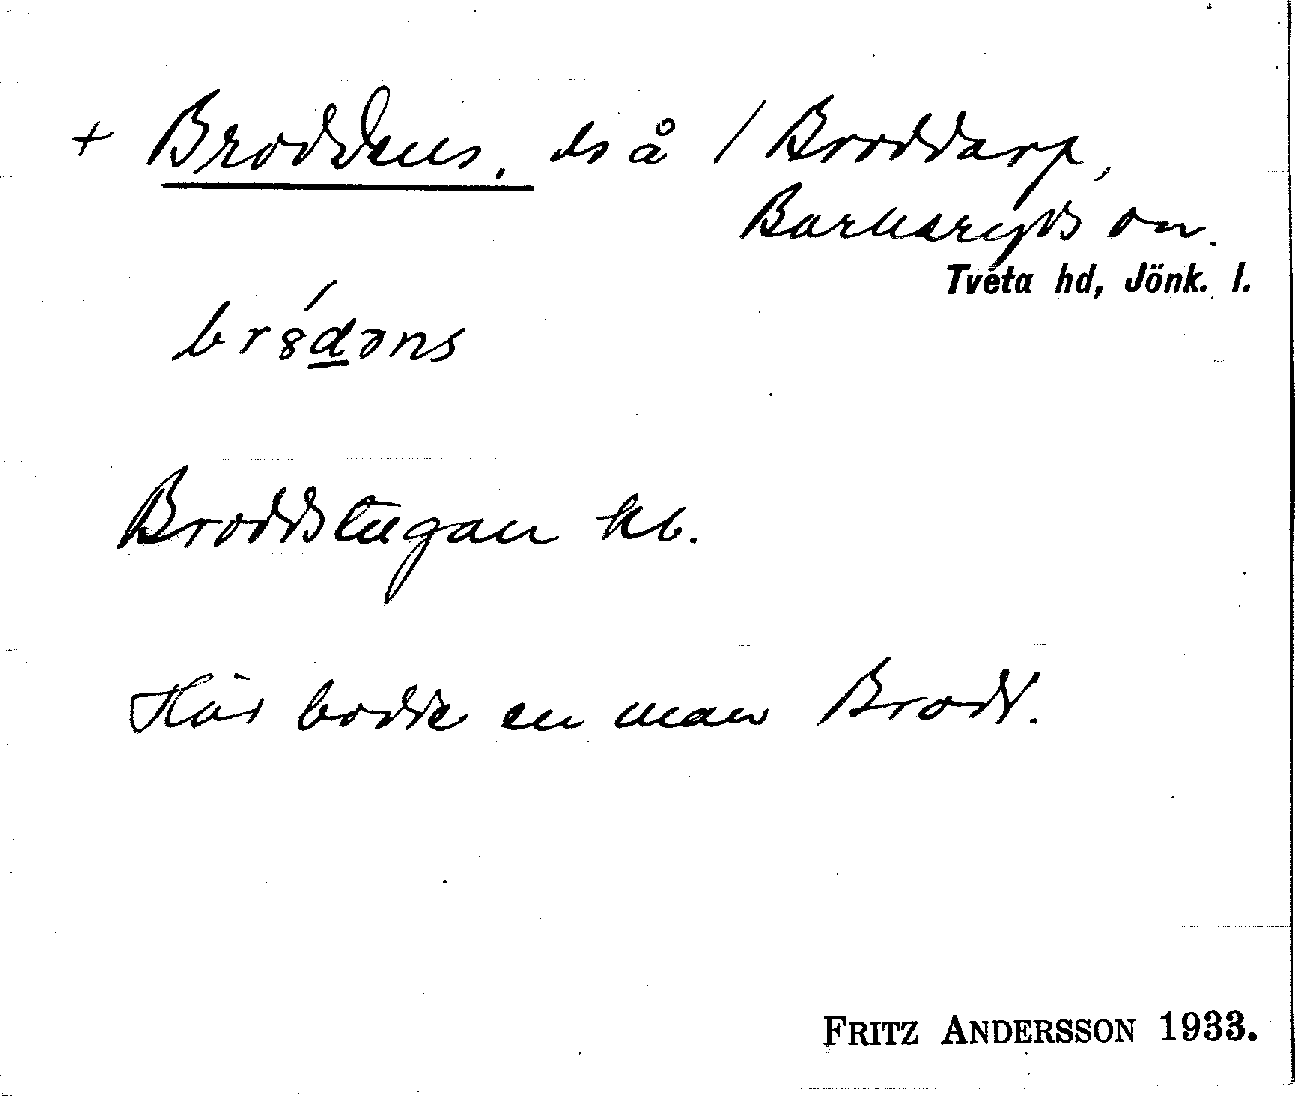 + Broddens, ds å / Broddarp,
Barkeryds sn.
Tveta hd, Jönk. l.
br8́dəns
Broddstugan kb.
Här bodde en man Brodd.
FRITZ ANDERSSON 1933.